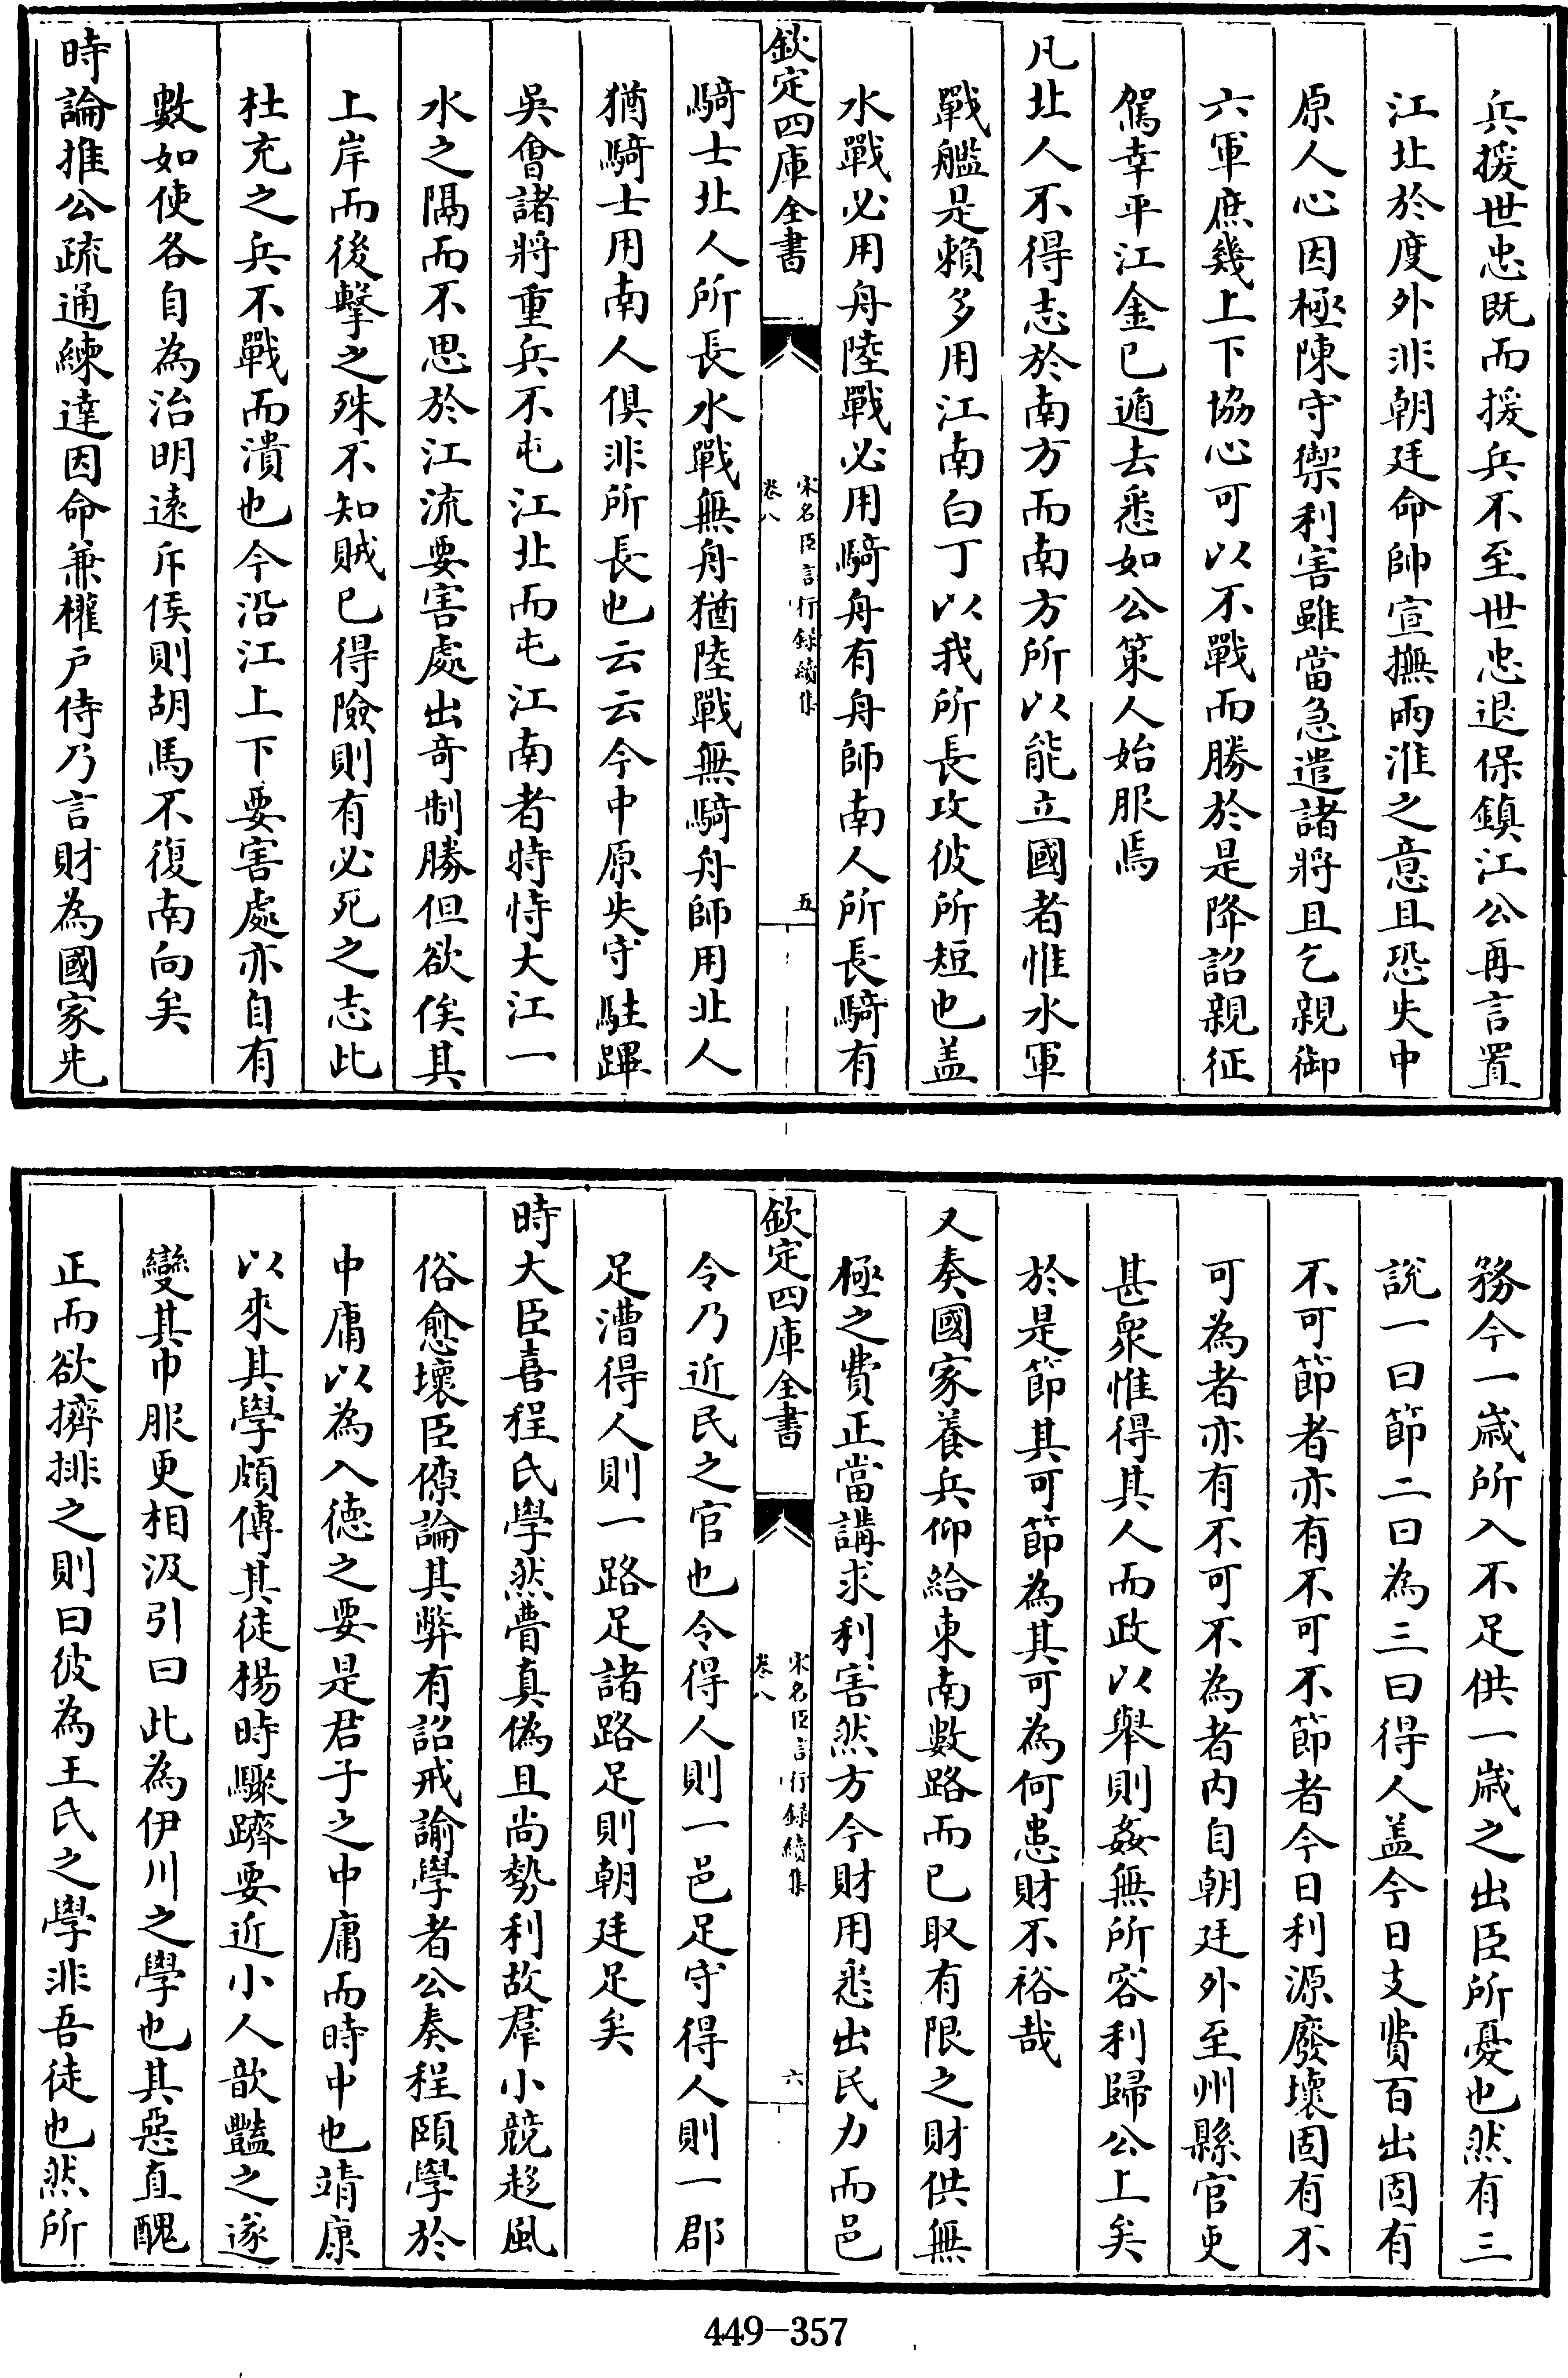 兵援世忠既而援兵不至世忠退保鎮江公再言置
江北於度外非朝廷命帥宣撫兩淮之意且恐失中
原人心因極陳守禦利害雖當急遣諸將且乞親御
六軍庶幾上下協心可以不戰而勝於是降詔親征
駕幸平江金已遁去悉如公策人始服焉
凡北人不得志於南方而南方所以能立國者惟水軍
戰艦是賴多用江南白丁以我所長攻彼所短也盖
水戰必用舟陸戰必用騎舟有舟師南人所長騎有
欽定四庫全書
宋名臣言行録續集
卷八
五
騎士北人所長水戰無舟猶陸戰無騎舟師用北人
猶騎士用南人俱非所長也云云今中原失守駐蹕
吳會諸將重兵不屯江北而屯江南者特恃大江一
水之隔而不思於江流要害處出奇制勝但欲俟其
上岸而後擊之殊不知賊已得險則有必死之志此
杜充之兵不戰而潰也今沿江上下要害處亦自有
數如使各自為治明遠斥侯則胡馬不復南向矣
時論推公疏通練達因命兼權户侍乃言財為國家先
務今一歲所入不足供一歲之出臣所憂也然有三
說一曰節二曰為三曰得人盖今日支費百出固有
不可節者亦有不可不節者今日利源廢壞固有不
可為者亦有不可不為者内自朝廷外至州縣官吏
甚衆惟得其人而政以舉則姦無所容利歸公上矣
於是節其可節為其可為何患財不裕哉
又奏國家養兵仰給東南數路而已取有限之財供無
極之費正當講求利害然方今財用悉出民力而邑
欽定四庫全書
宋名臣言行録續集
卷八
六
令乃近民之官也令得人則一邑足守得人則一郡
足漕得人則一路足諸路足則朝廷足矣
時大臣喜程氏學然瞢真偽且尚勢利故羣小競趍風
俗愈壞臣僚論其弊有詔戒諭學者公奏程頤學於
中庸以為入德之要是君子之中庸而時中也靖康
以來其學頗傳其徒楊時驟躋要近小人歆豔之遂
變其巾服更相汲引曰此為伊川之學也其惡直醜
正而欲擠排之則曰彼為王氏之學非吾徒也然所
449-357